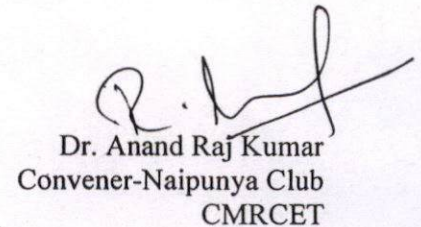 Dr. Anand Raj Kumar
Convener-Naipunya Club
CMRCET